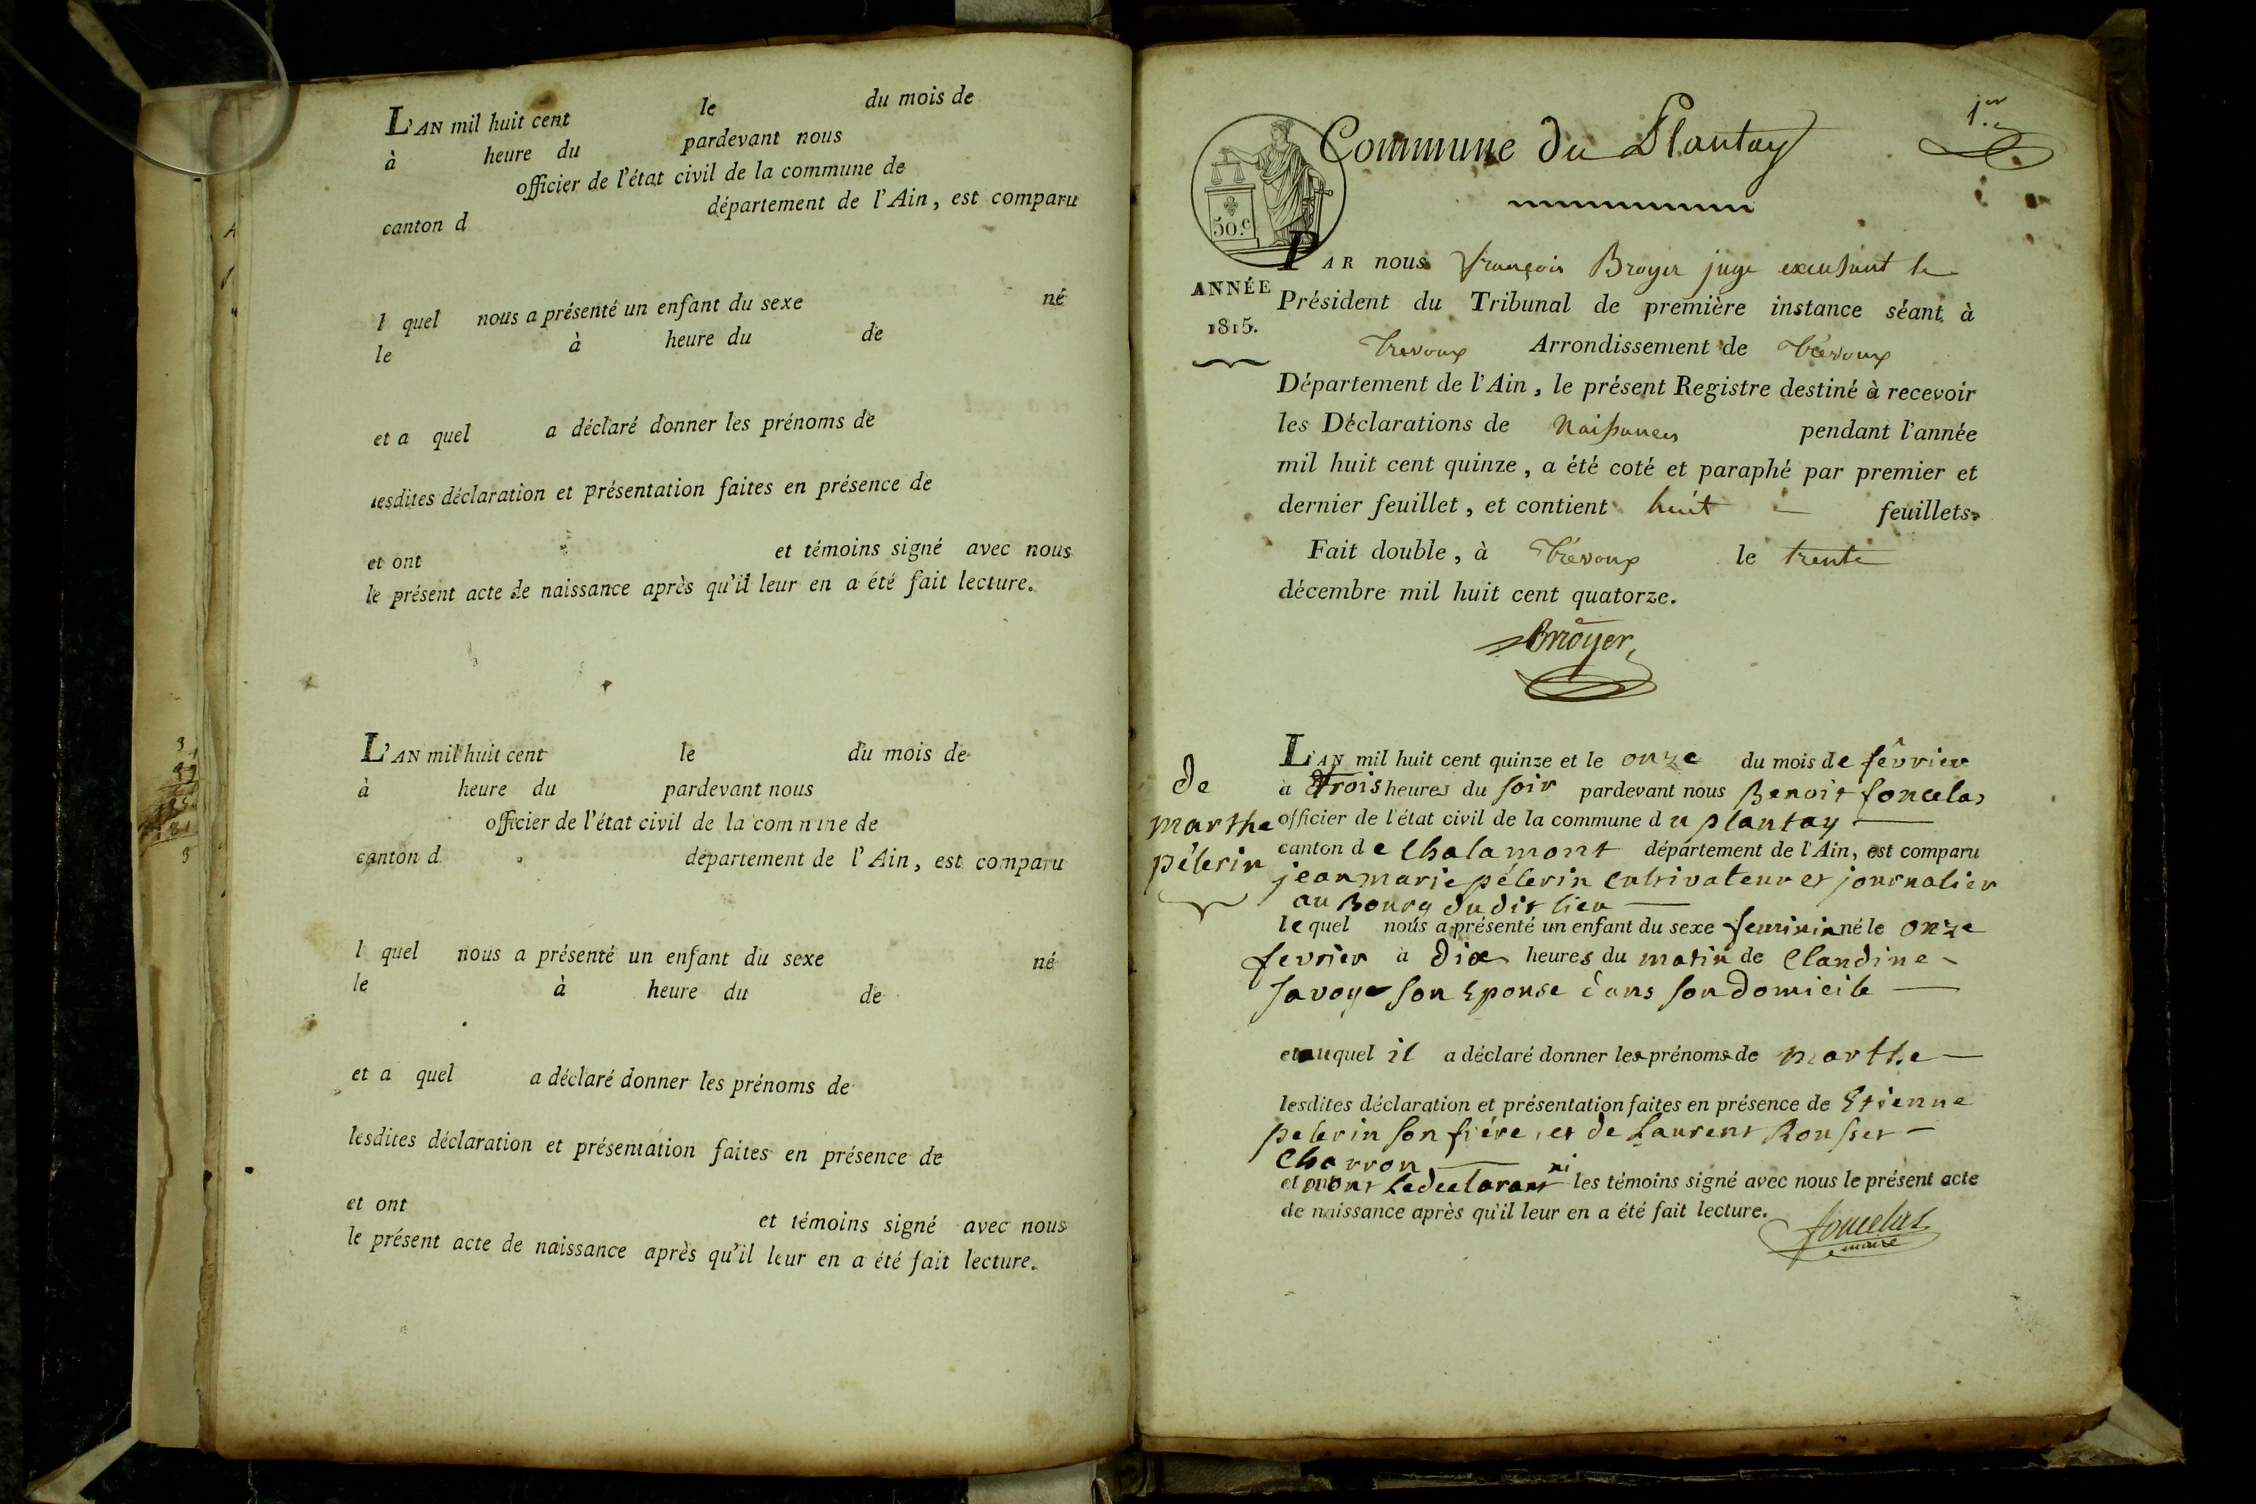 L'AN mil huit cent le du mois de
à heure du pardevant nous
officier de l'état civil de la commune de
canton d département de l'Ain, est comparu
l quel nous a présenté un enfant du sexe né
le à heure du de
et a quel a déclaré donner les prénoms de
lesdites déclaration et présentation faites en présence de
et ont et témoins signé avec nous
le présent acte de naissance après qu'il leur en a été fait lecture.
L'AN mil huit cent le du mois de
à heure du pardevant nous
officier de l'état civil de la commune de
canton d département de l'Ain, est comparu
l quel nous a présenté un enfant du sexe né
le à heure du de
et a quel a déclaré donner les prénoms de
lesdites déclaration et présentation faites en présence de
et ont et témoins signé avec nous
le présent acte de naissance après qu'il leur en a été fait lecture.
1.er
Commune du Plantay
50.c
ANNÉE
1815.
PAR nous François Broyer juge excusant le
Président du Tribunal de première instance séant à
Trevoux Arrondissement de Trévoux
Département de l'Ain, le présent Registre destiné à recevoir
les Déclarations de Naissances pendant l'année
mil huit cent quinze, a été coté et paraphé par premier et
dernier feuillet, et contient huit feuillets.
Fait double, à Trévoux le trente
décembre mil huit cent quatorze.
Broyer
de
marthe
pélerin
L'AN mil huit cent quinze et le onze du mois de février
à trois heures du soir pardevant nous Benoit foncelas
officier de l'état civil de la commune du plantay
canton de Chalamont département de l'Ain, est comparu
jean marie pélerin cultivateur et journalier
au Bourg dudit lieu
lequel nous a présenté un enfant du sexe feminin né le onze
fevrier à dix heures du matin de Claudine
savoye son Epouse dans son domicile
et auquel il a déclaré donner les prénoms de marthe
lesdites déclaration et présentation faites en présence de Etienne
pelerin son frére, et de Laurent Rousset
Charron
et ont le declarant ni les témoins signé avec nous le présent acte
de naissance après qu'il leur en a été fait lecture.
foncelas
maire